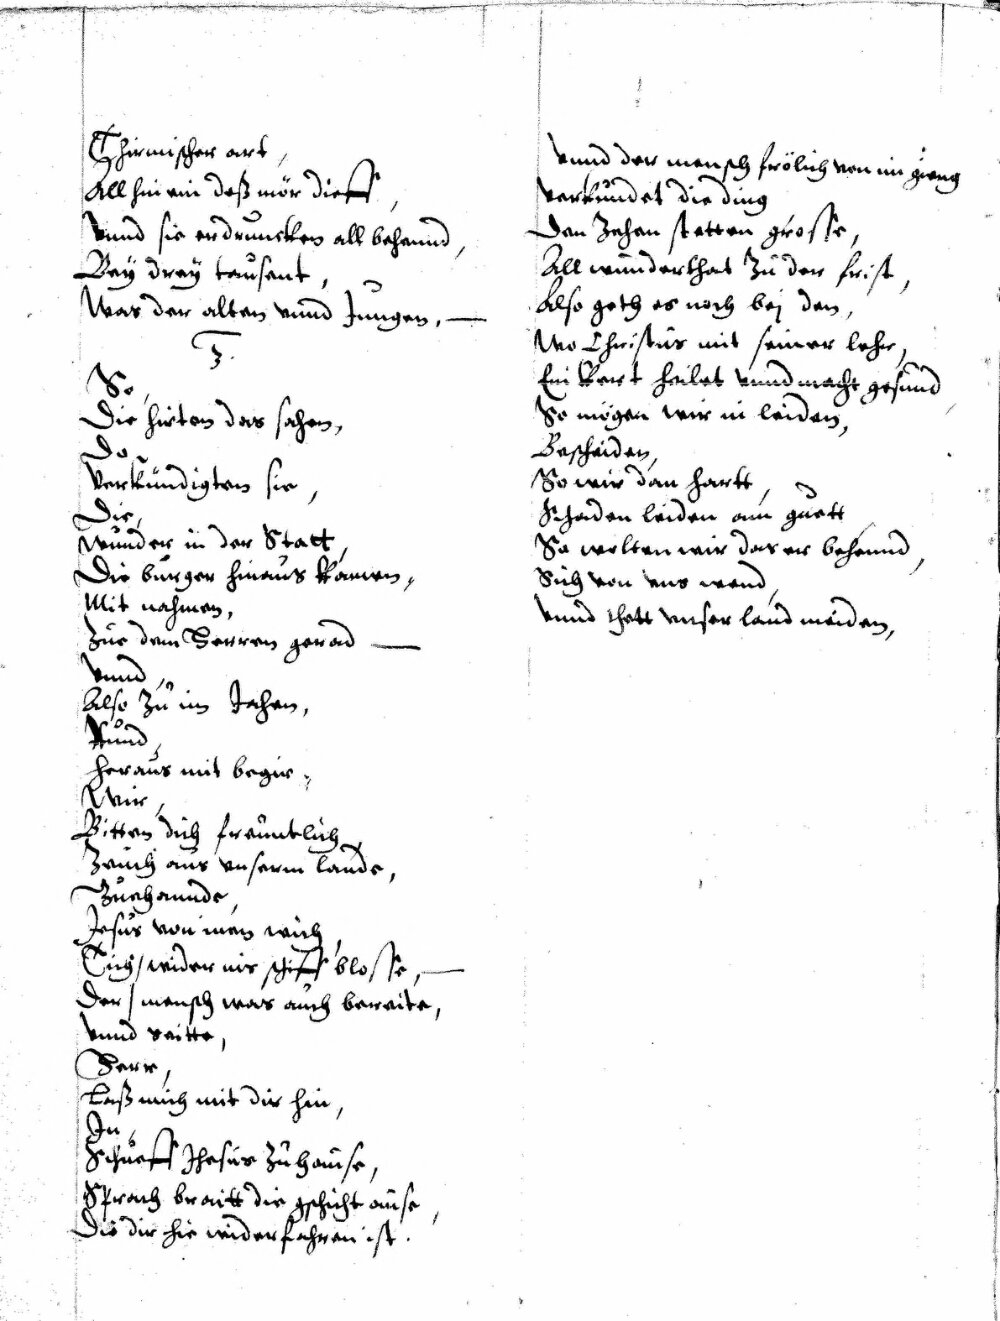 Thirmischer art,
All hinein deß mör dieff,
Vnnd sie erdruncken all behennd,
Bey drey tausent,
Was der alten vnnd Jungen,
3.
So,
Die hirten das sahen,
Do
Verkündigten sie,
Die,
Wunder in der Statt,
Die burger hinaus kamen,
Mit nahmen,
Zue dem Herren gerad
Vnnd,
Also zu im Jahen,
Rund,
heraus mit begir,
Wir,
Bitten dich freuntlich
Zeuch aus vnserm lande,
Zuehannde,
Jesus von inen wich
Sich / wider ins schiff blosse,
Der / mensch was auch bereite,
Vnnd seitte,
Herr,
Laß mich mit dir hin,
In,
Schueff Jhesus zu hause,
Sprach braitt die gschicht ause,
Die dir hie widerfahren ist.
Vnnd der mensch frölich von im gieng
verkundet die ding
Den Zehen stetten grosse,
All wunderthat Zu der frist,
Also geth es noch bej den,
Wo Christus mit seiner lehr,
Ein kert heilet vnnd macht gesund
So mögen wir in leiden,
Bescheiden,
So wir dan hartt,
Schaden leiden am guett,
So wolten wir das er behennd,
Sich von vns wend,
Vnnd thett vnser land meiden,